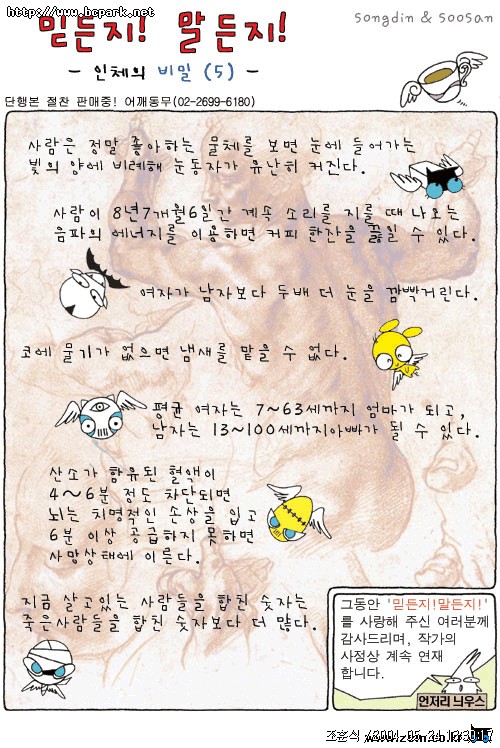 http://www.hcpark.net
믿든지! 말든지!
songdin & soosan
- 인체의 비밀 (5) -
단행본 절찬 판매중! 어깨동무(02-2699-6180)
사람은 정말 좋아하는 물체를 보면 눈에 들어가는
빛의 양에 비례해 눈동자가 유난히 커진다.
사람이 8년7개월6일간 계속 소리를 지를 때 나오는
음파의 에너지를 이용하면 커피 한잔을 끓일 수 있다.
여자가 남자보다 두배 더 눈을 깜빡거린다.
코에 물기가 없으면 냄새를 맡을 수 없다.
평균 여자는 7~63세까지 엄마가 되고,
남자는 13~100세까지아빠가 될 수 있다.
산소가 함유된 혈액이
4~6분 정도 차단되면
뇌는 치명적인 손상을 입고
6분 이상 공급하지 못하면
사망상태에 이른다.
지금 살고있는 사람들을 합친 숫자는
죽은사람들을 합친 숫자보다 더 많다.
그동안 '믿든지!말든지!'
를 사랑해 주신 여러분께
감사드리며, 작가의
사정상 계속 연재
합니다.
언저리 늬우스
조훈식